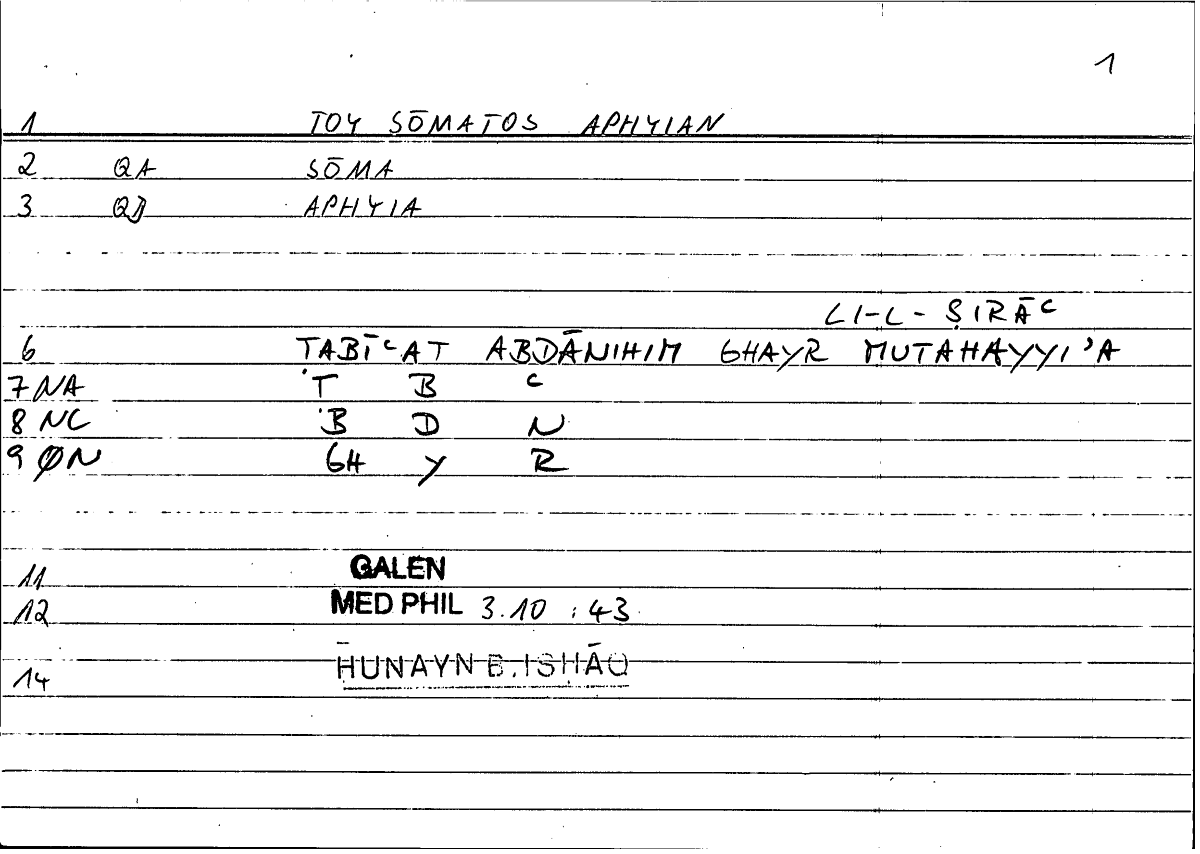 1
1 TOY SŌMATOS APHYIAN
2 QA SŌMA
3 QD APHYIA
LI-L-ṢIRĀC
6 TABĪCAT ABDĀNIHIM GHAYR MUTAHAYYI'A
7 NA T B C
8 NC B D N
9 ØN GH Y R
11 GALEN
12 MED PHIL 3.10 :43
14 HUNAYN B. ISHĀQ